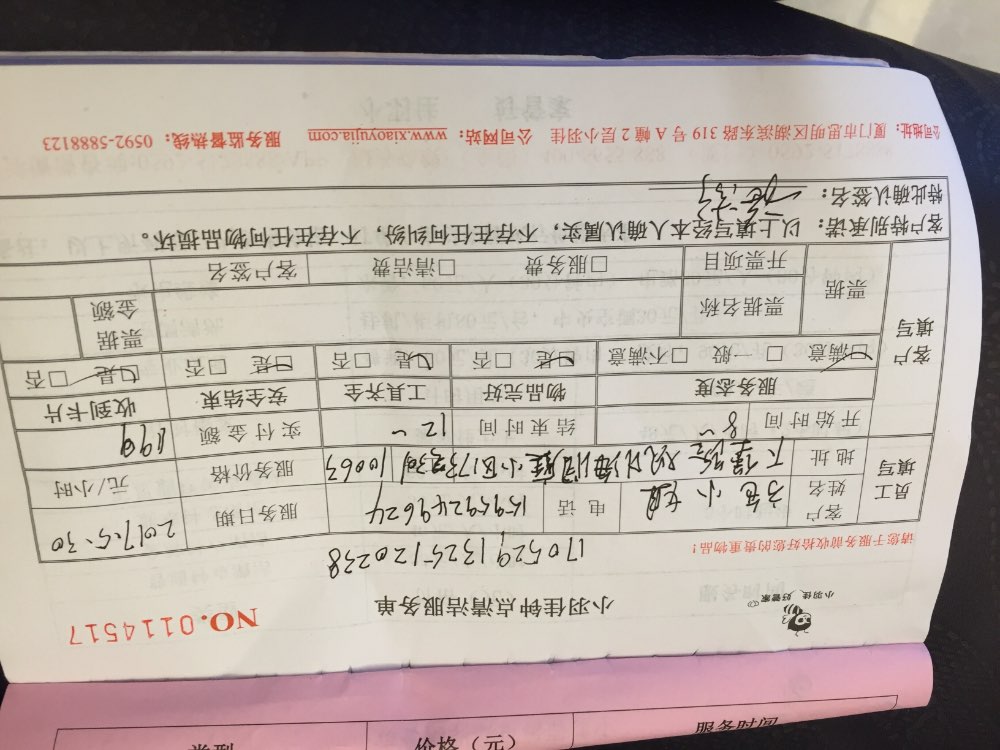 小羽佳 好管家
小羽佳钟点清洁服务单
NO.0114517
170529132512 0238
请您于服务前收拾好您的贵重物品!
员工填写 客户姓名 小姐 电话 15959249624 服务日期 2017.5.30
地址 10063 服务价格 元/小时
开始时间 8~ 结束时间 12~ 实付金额 199
客户填写 服务态度 物品完好 工具齐全 安全结束 收到卡片
☑满意 □一般 □不满意 ☑是 □否 ☑是 □否 ☑是 □否 ☑是 □否
票据 票据名称 票据金额
开票项目 □服务费 □清洁费 客户签名
客户特别承诺:以上填写经本人确认属实,不存在任何纠纷,不存在任何物品损坏。
特此确认签名:
公司地址:厦门市思明区湖滨东路 319 号 A 幢 2 层小羽佳 公司网站:www.xiaoyujia.com 服务监督热线:0592-5888123
类型 价格(元) 服务时间